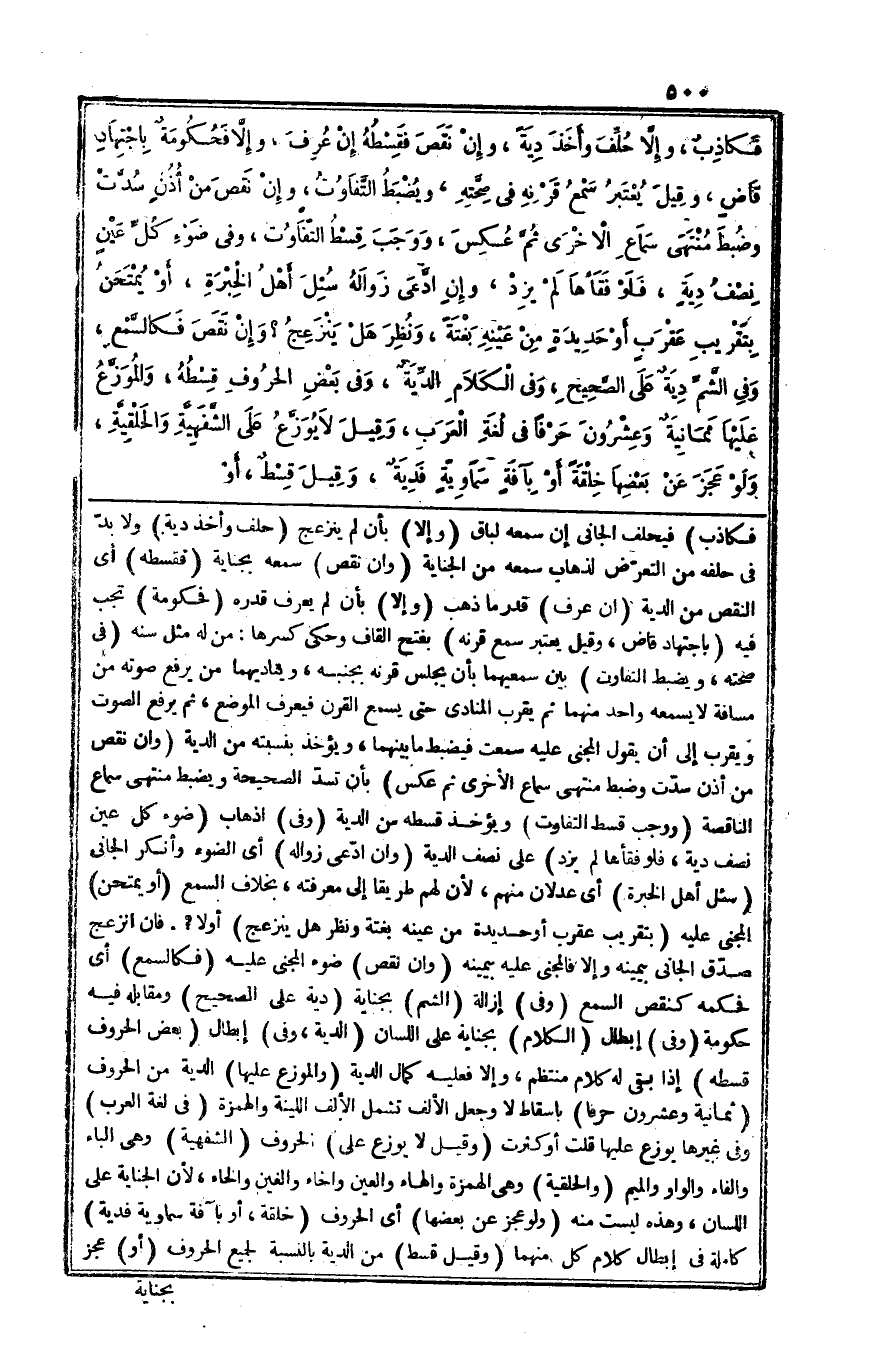 ٥٠٠
فَكَاذِبٌ ، وَإِلَّا حُلِّفَ وَأَخَذَ دِيَةً ، وَإِنْ نَقَصَ فَقِسْطُهُ إِنْ عُرِفَ ، وَإِلَّا فَحُكُومَةٌ بِاجْتِهَادِ
قَاضٍ ، وَقِيلَ يُعْتَبَرُ سَمْعُ قَرْنِهِ فِى صِحَّتِهِ ، وَيُضْبَطُ التَّفَاوُتُ ، وَإِنْ نَقَصَ مِنْ أُذُنٍ سُدَّتْ
وَضُبِطَ مُنْتَهَى سَمَاعِ الْاخْرَى ثُمَّ عُكِسَ ، وَوَجَبَ قِسْطُ التَّفَاوُتِ ، وَفِى ضَوْءِ كُلِّ عَيْنٍ
نِصْفُ دِيَةٍ ، فَلَوْ فَقَأَهَا لَمْ يَزِدْ ، وَإِنِ ادَّعَى زَوَالَهُ سُئِلَ أَهْلُ الْخِبْرَةِ ، أَوْ يُمْتَحَنُ
بِتَقْرِيبِ عَقْرَبٍ أَوْ حَدِيدَةٍ مِنْ عَيْنِهِ بَغْتَةً ، وَنُظِرَ هَلْ يَنْزَعِجُ ؟ وَإِنْ نَقَصَ فَكَالسَّمْعِ ،
وَفِى الشَّمِّ دِيَةٌ عَلَى الصَّحِيحِ ، وَفِى الْكَلَامِ الدِّيَةُ ، وَفِى بَعْضِ الْحُرُوفِ قِسْطُهُ ، وَالْمُوَزَّعُ
عَلَيْهَا ثَمَانِيَةٌ وَعِشْرُونَ حَرْفًا فِى لُغَةِ الْعَرَبِ ، وَقِيلَ لَا يُوَزَّعُ عَلَى الشَّفَهِيَّةِ وَالْحَلْقِيَّةِ ،
وَلَوْ عَجَزَ عَنْ بَعْضِهَا خِلْقَةً أَوْ بِآفَةٍ سَمَاوِيَّةٍ فَدِيَةٌ ، وَقِيلَ قِسْطٌ ، أَوْ
فكاذب ) فيحلف الجانى إن سمعه لباق (وإلا) بأن لم ينزعج (حلف وأخذ دية) ولا بدّ
فى حلفه من التعرّض لذهاب سمعه من الجناية (وان نقص) سمعه بجناية (فقسطه) أى
النقص من الدية (ان عرف) قدر ما ذهب (وإلا) بأن لم يعرف قدره (فحكومة) تجب
فيه (باجتهاد قاض ، وقيل يعتبر سمع قرنه) بفتح القاف وحكى كسرها : من له مثل سنه (فى
صحته ، ويضبط التفاوت) بين سمعيهما بأن يجلس قرنه بجنبه ، ويناديهما من يرفع صوته من
مسافة لا يسمعه واحد منهما ثم يقرب المنادى حتى يسمع القرن فيعرف الموضع ، ثم يرفع الصوت
ويقرب إلى أن يقول المجنى عليه سمعت فيضبط ما بينهما ، ويؤخذ بنسبته من الدية (وان نقص
من أذن سدّت وضبط منتهى سماع الأخرى ثم عكس) بأن تسدّ الصحيحة ويضبط منتهى سماع
الناقصة (ووجب قسط التفاوت) ويؤخذ قسطه من الدية (وفى) اذهاب (ضوء كل عين
نصف دية ، فلو فقأها لم يزد) على نصف الدية (وان ادّعى زواله) أى الضوء وأنكر الجانى
(سئل أهل الخبرة) أى عدلان منهم ، لأن لهم طريقا إلى معرفته ، بخلاف السمع (أو يمتحن)
المجنى عليه (بتقريب عقرب أو حديدة من عينه بغتة ونظر هل ينزعج) أولا؟ . فان انزعج
صدّق الجانى بيمينه وإلا فالمجنى عليه بيمينه (وان نقص) ضوء المجنى عليه (فكالسمع) أى
فحكمه كنقص السمع (وفى) إزالة (الشم) بجناية (دية على الصحيح) ومقابله فيه
حكومة (وفى) إبطال (الكلام) بجناية على اللسان (الدية ، وفى) إبطال (بعض الحروف
قسطه) إذا بقى له كلام منتظم ، وإلا فعليه كمال الدية (والموزع عليها) الدية من الحروف
(ثمانية وعشرون حرفا) باسقاط لا وجعل الألف تشمل الألف اللينة والهمزة (فى لغة العرب)
وفى غيرها يوزع عليها قلت أو كثرت (وقيل لا يوزع على) الحروف (الشفهية) وهى الباء
والفاء والواو والميم (والحلقية) وهى الهمزة والهاء والعين واخاء والغين والحاء ، لأن الجناية على
اللسان ، وهذه ليست منه (ولو عجز عن بعضها) أى الحروف (خلقة ، أو بآفة سماوية فدية)
كاملة فى إبطال كلام كل منهما (وقيل قسط) من الدية بالنسبة لجميع الحروف (أو) عجز
بجناية